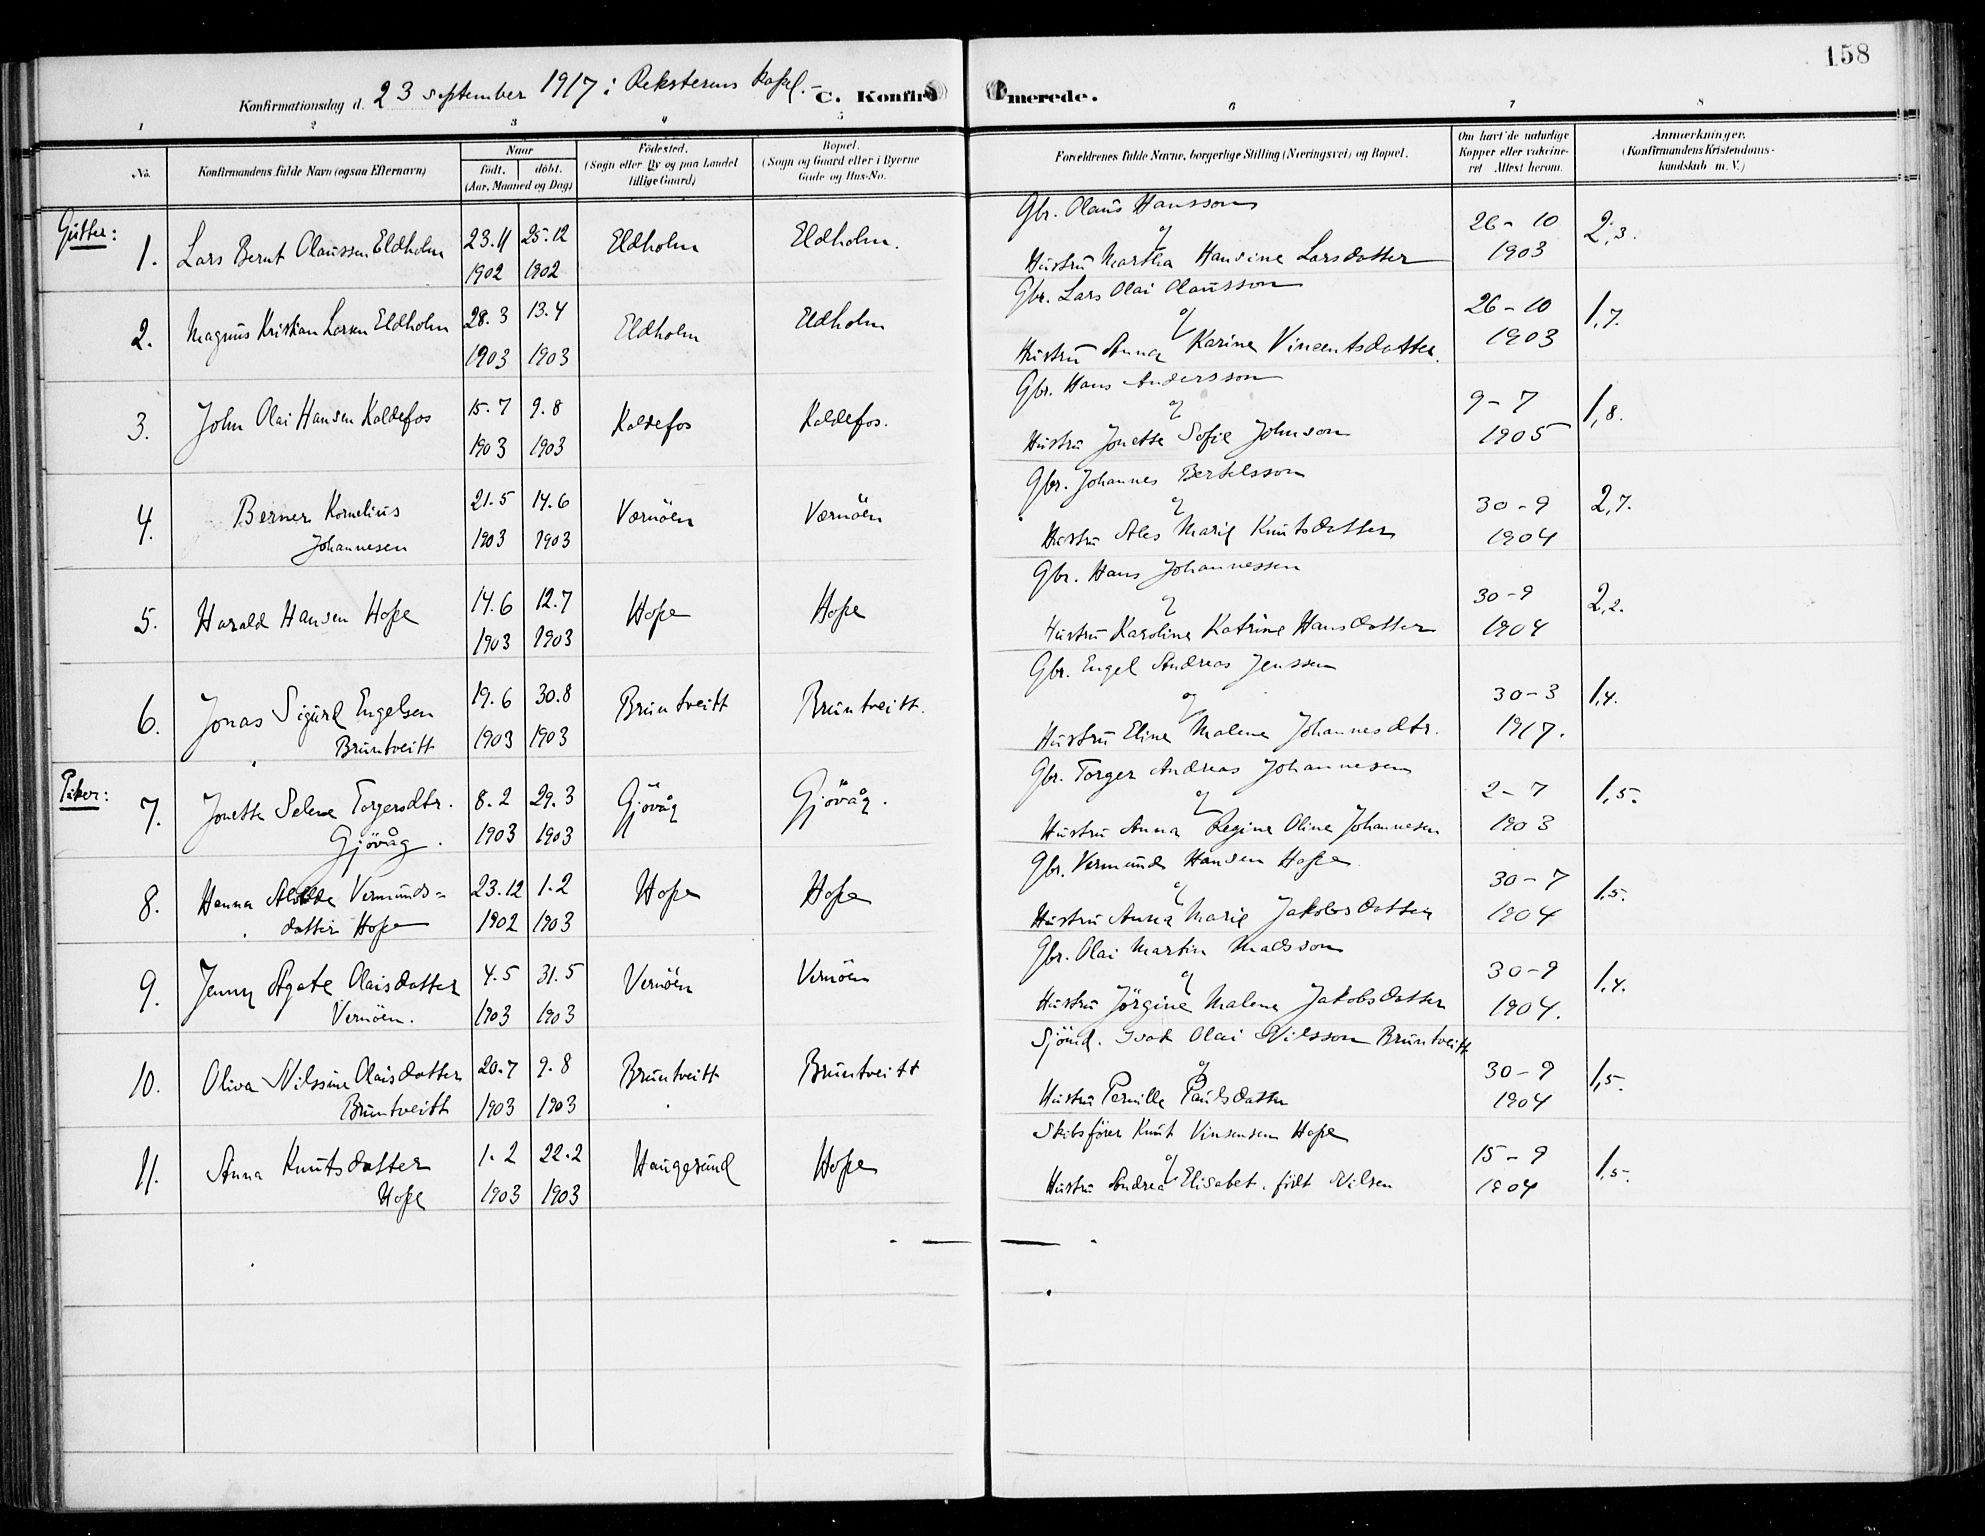 158
Konfirmationsdag d. 23 september 1917 i Reksterens kapel. -
C. Konfirmerede.
1 2 3 4 5 6 7 8
No. Konfirmandens fulde Navn (ogsaa Efternavn) Naar født. døbt. (Aar, Maaned og Dag) Fødested. (Sogn eller By og paa Landet tillige Gaard) Bopæl. (Sogn og Gaard eller i Byerne Gade og Hus-No. Forældrenes fulde Navne, borgerlige Stilling (Næringsvei) og Bopæl. Om havt de naturlige Kopper eller vakcineret Attest herom. Anmærkninger. (Konfirmandens Kristendomskundskab m. V.)
Gutter:
1. Lars Bernt Olaussen Eldholm 23.11 1902 25.12 1902 Eldholm Eldholm. Gbr. Olaus Hansson
og
Hustru Martha Hansine Larsdatter 26 - 10 1903 2,3.
2. Magnus Kristian Larsen Eldholm 28.3 1903 13.4 1903 Eldholm Eldholm Gbr. Lars Olai Olausson
og
Hustru Anna Karine Vincentsdatter. 26 - 10 1903 1,7.
3. John Olai Hansen Koldefos 15.7 1903 9.8 1903 Koldefos Koldefos. Gbr. Hans Andersson
og
Hustru Jonette Sofie Johnson 9 - 7 1905 1,8.
4. Berner Kornelius
Johannesen 21.5 1903 14.6 1903 Værnöen Værnöen Gbr. Johannes Bertelsson
og
Hustru Ales Marie Knutsdatter 30 - 9 1904 2,7.
5. Harald Hansen Hope 14.6 1903 12.7 1903 Hope Hope Gbr. Hans Johannessen
og
Hustru Karoline Katrine Hansdatter 30 - 9 1904 2,2.
6. Jonas Sigurd Engelsen
Bruntveitt 19.6 1903 30.8 1903 Bruntveitt Bruntveitt. Gbr. Engel Andreas Jenssen
og
Hustru Eline Malene Johannesdtr. 30 - 3 1917. 1,4.
Piker:
7. Jonette Selene Torgersdtr.
Gjövåg. 8.2 1903 29.3 1903 Gjövåg Gjövåg. Gbr. Torger Andreas Johannesen
og
Hustru Anna Regine Oline Johannesen 2 - 7 1903 1,5.
8. Hanna Vermunds-
datter Hope 23.12 1902 1.2 1903 Hope Hope Gbr. Vermund Hansen Hope
og
Hustru Anna Marie Jakobsdatter 30 - 7 1904 1,5.
9. Jenny Agate Olaisdatter
Vernöen. 4.5 1903 31.5 1903 Vernöen Vernöen Gbr. Olai Martin Madsson
og
Hustru Jörgine Malene Jakobsdatter 30 - 9 1904. 1,4.
10. Oliva Nilssine Olaisdatter
Bruntveitt 20.7 1903 9.8 1903 Bruntveitt Bruntveitt Sjömd. Isak Olai Nilsson Bruntveitt
og
Hustru Pernille Paulsdatter 30 - 9 1904 1,5.
11. Anna Knutsdatter
Hope 1.2 1903 22.2 1903 Haugesund Hope Skibsförer Knut Vinsensen Hope
og
Hustru Andrea Elisabet. födt Nilsen 15 - 9 1904 1,5.